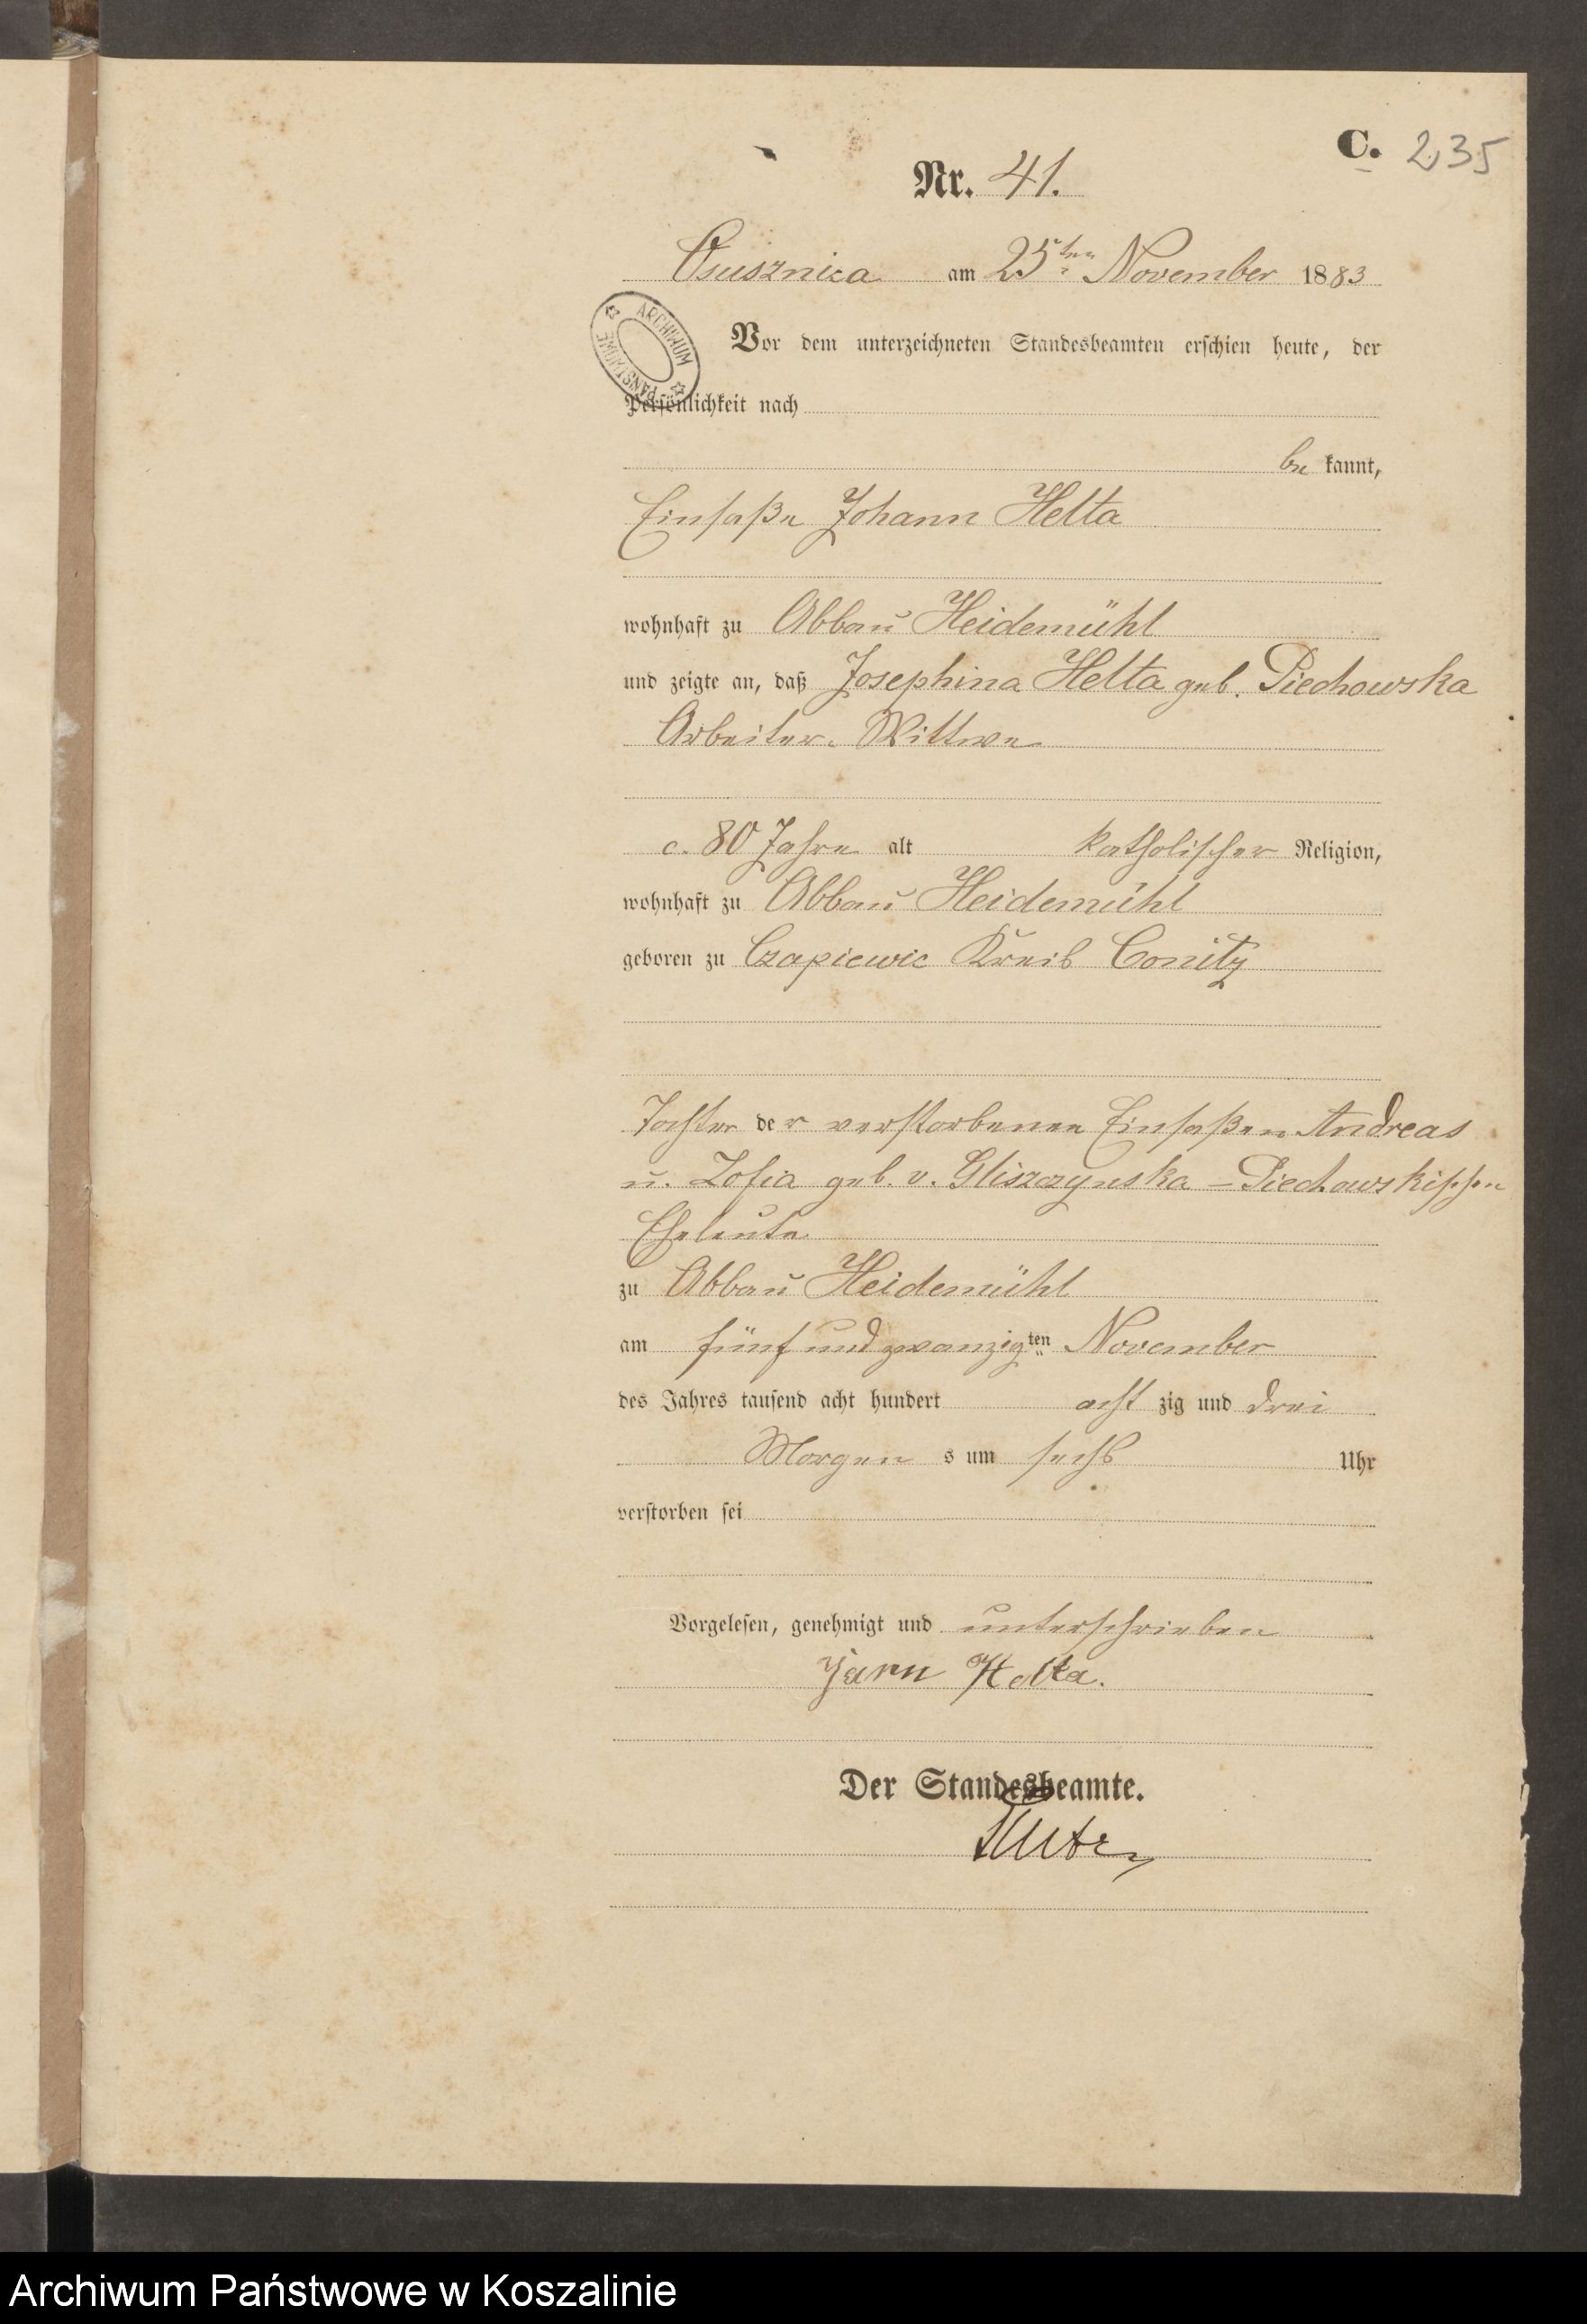 C. 235
Nr. 41.
Osusznica am 25ten November 1883
ARCHIWUM PAŃSTWOWE
Vor dem unterzeichneten Standesbeamten erschien heute, der
Persönlichkeit nach
be kannt,
Einsaße Johann Helta
wohnhaft zu Abbau Heidemühl
und zeigte an, daß Josephina Helta geb. Piechowska
Arbeiter-Wittwe
c. 80 Jahre alt katholischer Religion,
wohnhaft zu Abbau Heidemühl
geboren zu Czapiewic Kreis Conitz
Tochter der verstorbenen Einsaßen Andreas
u. Zofia geb. v. Gliszczynska - Piechowskischen
Eheleute
zu Abbau Heidemühl
am fünf und zwanzigten November
des Jahres tausend acht hundert acht zig und drei
Morgen s um sechs Uhr
verstorben sei
Vorgelesen, genehmigt und unterschrieben
Jann Helta.
Der Standesbeamte.
Archiwum Państwowe w Koszalinie